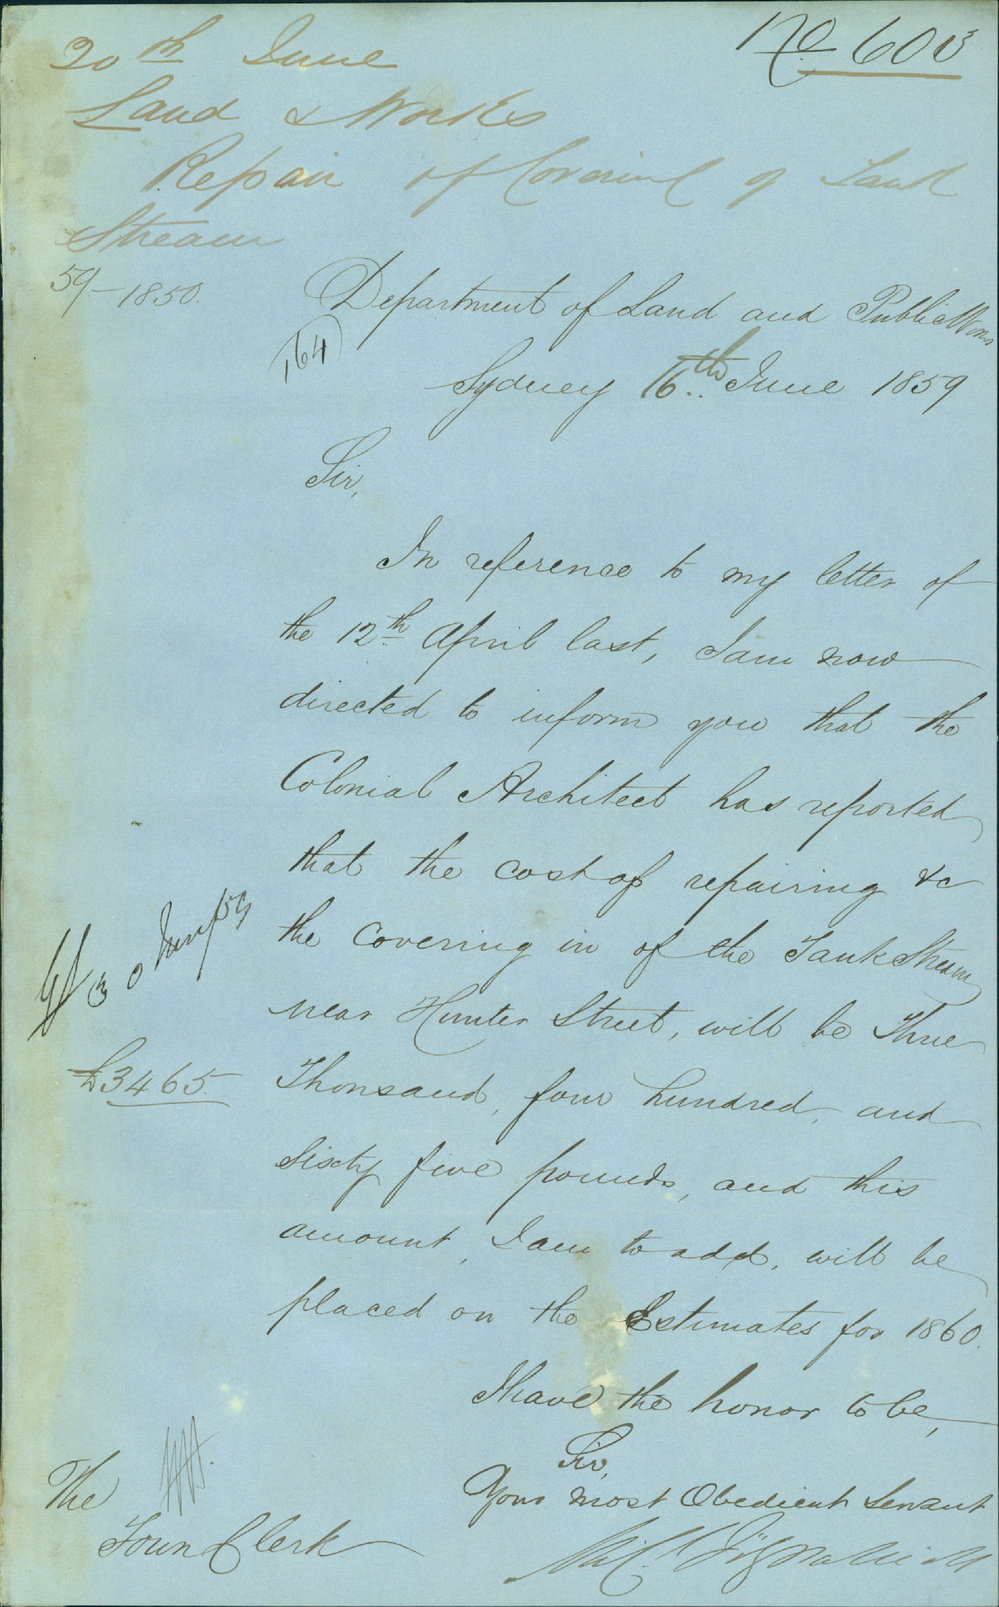 No 603
20th June
Land & Works
Repair of Covering of Tank
Stream
59-1850.
Department of Land and Public Works
164
Sydney 16th June 1859
Sir,
In reference to my letter of
the 12th April last, I am now
directed to inform you that the
Colonial Architect has reported
that the cost of repairing &c
the covering in of the Tank Stream
near Hunter Street, will be Three
£3465.
Thousand, four hundred, and
sixty five pounds, and this
amount, I am to add, will be
placed on the Estimates for 1860.
I have the honor to be,
Sir,
Your most Obedient Servant
The
Town Clerk